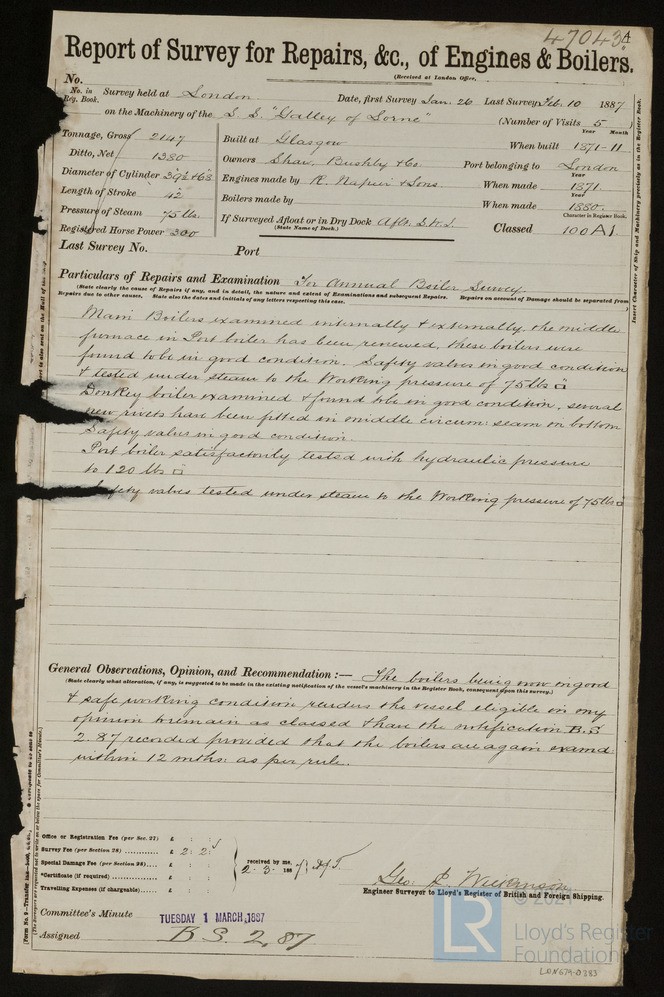 47043A
Report of Survey for Repairs, &c., of Engines & Boilers.
(Received at London Office,
No.
No. in Reg. Book. Survey held at London Date, first Survey Jan. 26 Last Survey Feb. 10 1887
on the Machinery of the S. S. "Valley of Lorne" (Number of Visits 5
Tonnage, Gross 2147
Ditto, Net 1380
Diameter of Cylinder
Length of Stroke 42
Pressure of Steam 75 lbs.
Registered Horse Power 300
Built at Glasgow
Owners Shaw, Bushby & Co
Engines made by R. Napier & Sons
Boilers made by
If Surveyed Afloat or in Dry Dock
(State Name of Dock.)
Year Month
When built 1871-11
Port belonging to London
Year
When made 1871
Year
When made 1880
Character in Register Book.
Classed 100A1.
Last Survey No. Port
Particulars of Repairs and Examination For Annual Boiler Survey
(State clearly the cause of Repairs if any, and in detail, the nature and extent of Examinations and subsequent Repairs. Repairs on account of Damage should be separated from
Repairs due to other causes. State also the dates and initials of any letters respecting this case.
Main Boilers examined internally & externally, the middle
furnace in Port boiler has been renewed, these boilers were
found to be in good condition. Safety valves in good condition
& tested under steam to the Working pressure of 75 lbs □
Donkey boiler examined & found to be in good condition. several
new rivets have been fitted in middle circum: seam on bottom
Safety valve in good condition.
Port boiler satisfactorily tested with hydraulic pressure
to 120 lbs □
Safety valves tested under steam to the Working pressure of 75 lbs □
General Observations, Opinion, and Recommendation :— The boilers being now in good
(State clearly what alteration, if any, is suggested to be made in the existing notification of the vessel's machinery in the Register Book, consequent upon this survey.)
& safe working condition renders the vessel eligible in my
opinion to remain as classed & have the notification B.S
2.87 recorded provided that the boilers are again examd:
within 12 mths: as per rule.
Office or Registration Fee (per Sec. 27) £ : :
Survey Fee (per Section 28) £ 2 : 2 :
Special Damage Fee (per Section 28) £ : :
*Certificate (if required) £ : :
Travelling Expenses (if chargeable) £ : :
received by me,
2.3. 1887
Geo. P. Wilkinson
Engineer Surveyor to Lloyd's Register of British and Foreign Shipping.
Committee's Minute TUESDAY 1 MARCH, 1887
Assigned B S. 2,87
© 2021
LR
Lloyd's Register
Foundation
LON679-0383